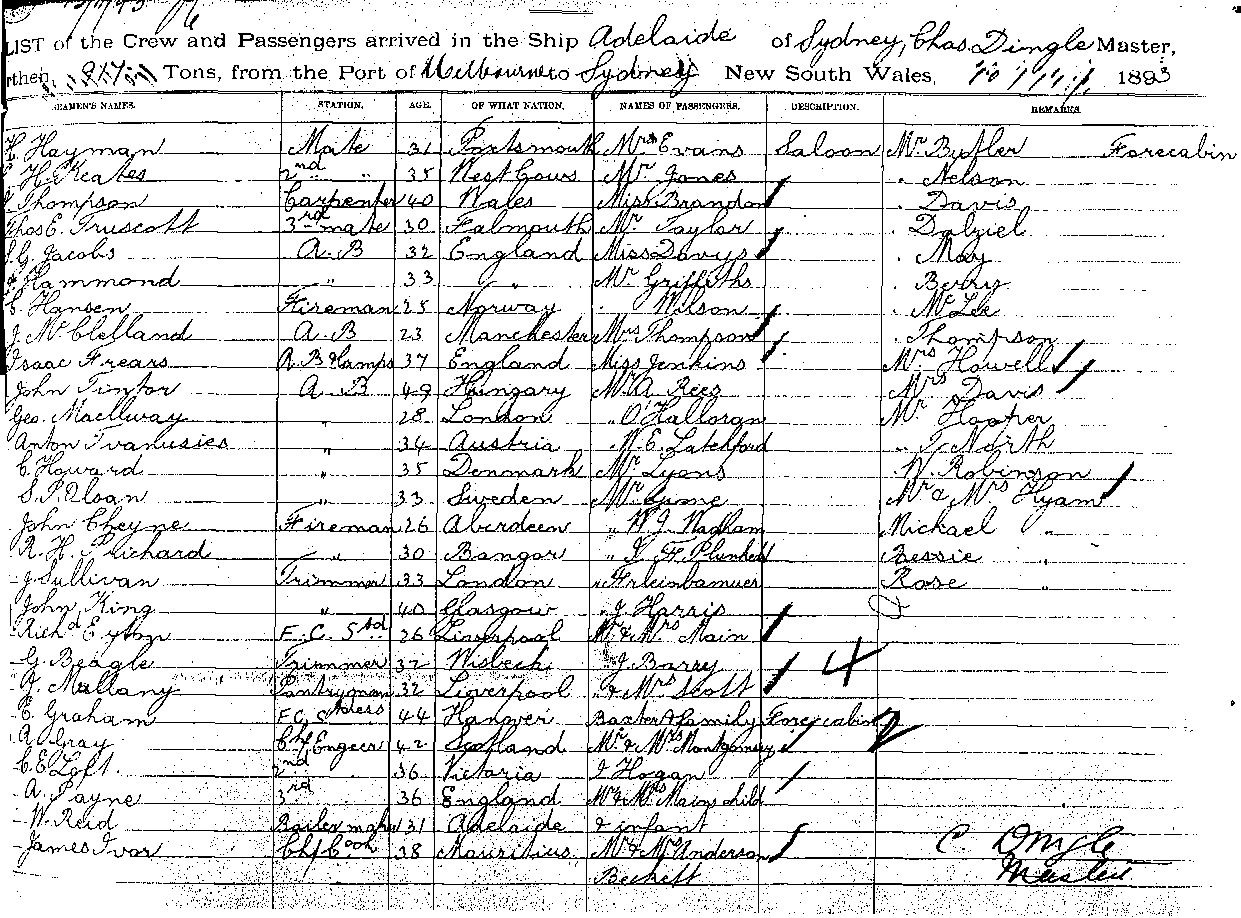 LIST of the Crew and Passengers arrived in the Ship Adelaide of Sydney, Chas. Dingle Master,
rthen, Tons, from the Port of Melbourne to Sydney New South Wales, 1893
SEAMEN'S NAMES. STATION. AGE. OF WHAT NATION. NAMES OF PASSENGERS. DESCRIPTION. REMARKS.
Hayman Mate 31 Portsmouth Mrs Evans Saloon Mr Butler Forecabin
H. Keates 2nd " 35 West Cows Mr Jones " Nelson
Thompson Carpenter 40 Wales Miss Brandon " Davis
Thos E. Truscott 3rd mate 30 Falmouth Mr Taylor " Dalziel
G. Jacobs A.B 32 England Miss Davys " May
Hammond " 33 " Mr Griffiths " Berry
Hansen Fireman 25 Norway " Wilson " McLee
J. McClelland A.B 23 Manchester Mrs Thompson " Thompson
Isaac Frears A.B & Lamps 37 England Miss Jenkins Mrs Howell
John Tintor A.B 49 Hungary Mr A Rees Mrs Davis
Geo. " 28 London " O'Halloran Mr Hooper
Anton " 34 Austria " W. E. Latchford " North
C. Howard " 35 Denmark Mr Lyons " W. Robinson
S. P. Sloan " 33 Sweden Mr Mr & Mrs Hyam
John Cheyne Fireman 26 Aberdeen " W. J. Wadham Michael "
R. H. Prichard " 30 Bangor " F Plunkett Bessie "
J Sullivan Trimmer 33 London Rose "
John King " 40 Glasgow " J Harris
Richd Eyton F.C. Std 26 Liverpool Mr & Mrs Main
G. Beagle Trimmer 32 Wisbech " J Barry 4
J. Mullany Pantryman 32 Liverpool " & Mrs Scott
E. Graham F.C. Stdess 44 Hanover Baxter & family Forecabin 2
A. Gray Chf Engeer 42 Scotland Mr & Mrs Montgomery
C. E. Loft 2nd 36 Victoria & Hogan
A. Payne 3rd 36 England Mr & Mrs Main, child
W. Reid Boiler maker 31 Adelaide & infant
James Ivor Chf Cook 38 Mauritius Mr & Mrs Anderson C. Dingle
Beckett Master